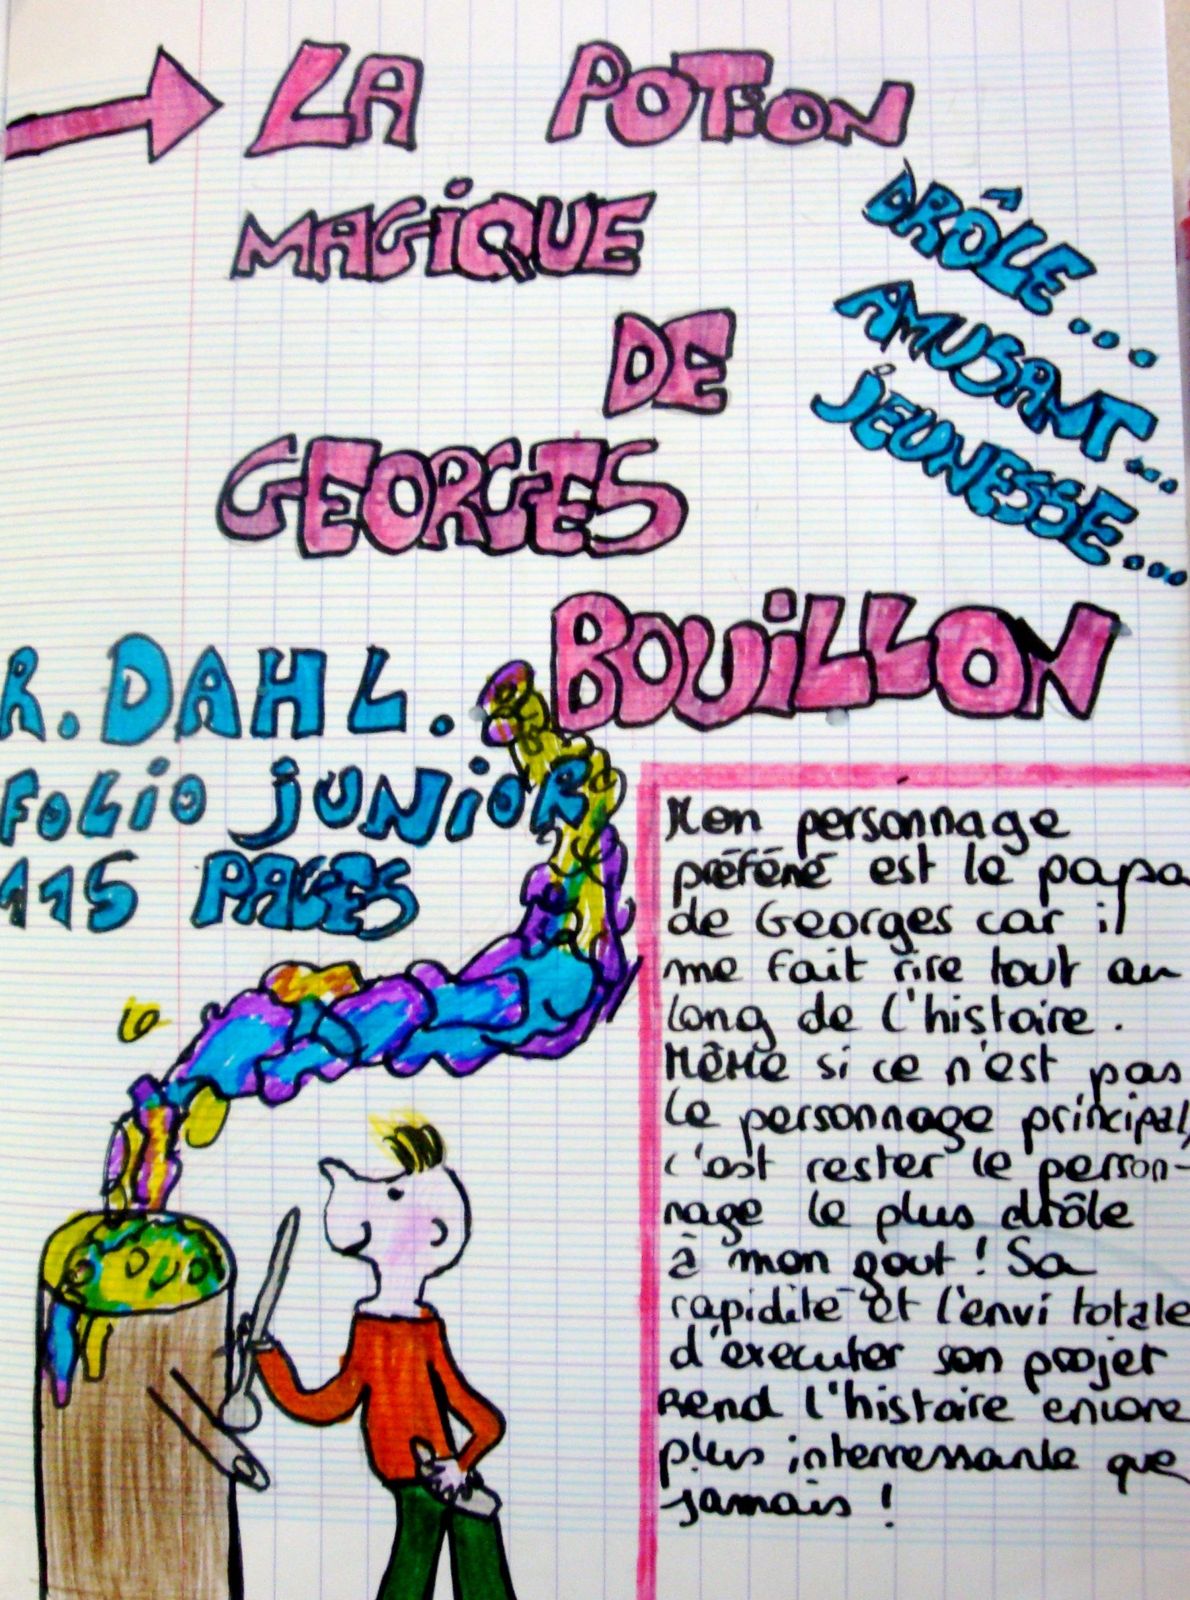 LA POTION
MAGIQUE
DE
GEORGES
BOUILLON
DRÔLE...
AMUSANT...
JEUNESSE...
R. DAHL.
FOLIO JUNIOR
115 PAGES
Mon personnage
préféré est le papa
de Georges car il
me fait rire tout au
long de l'histoire.
MÊME si ce n'est pas
le personnage principal,
c'est rester le person-
nage le plus drôle
à mon gout ! Sa
rapidité et l'envi totale
d'executer son projet
rend l'histoire encore
plus interressante que
jamais !